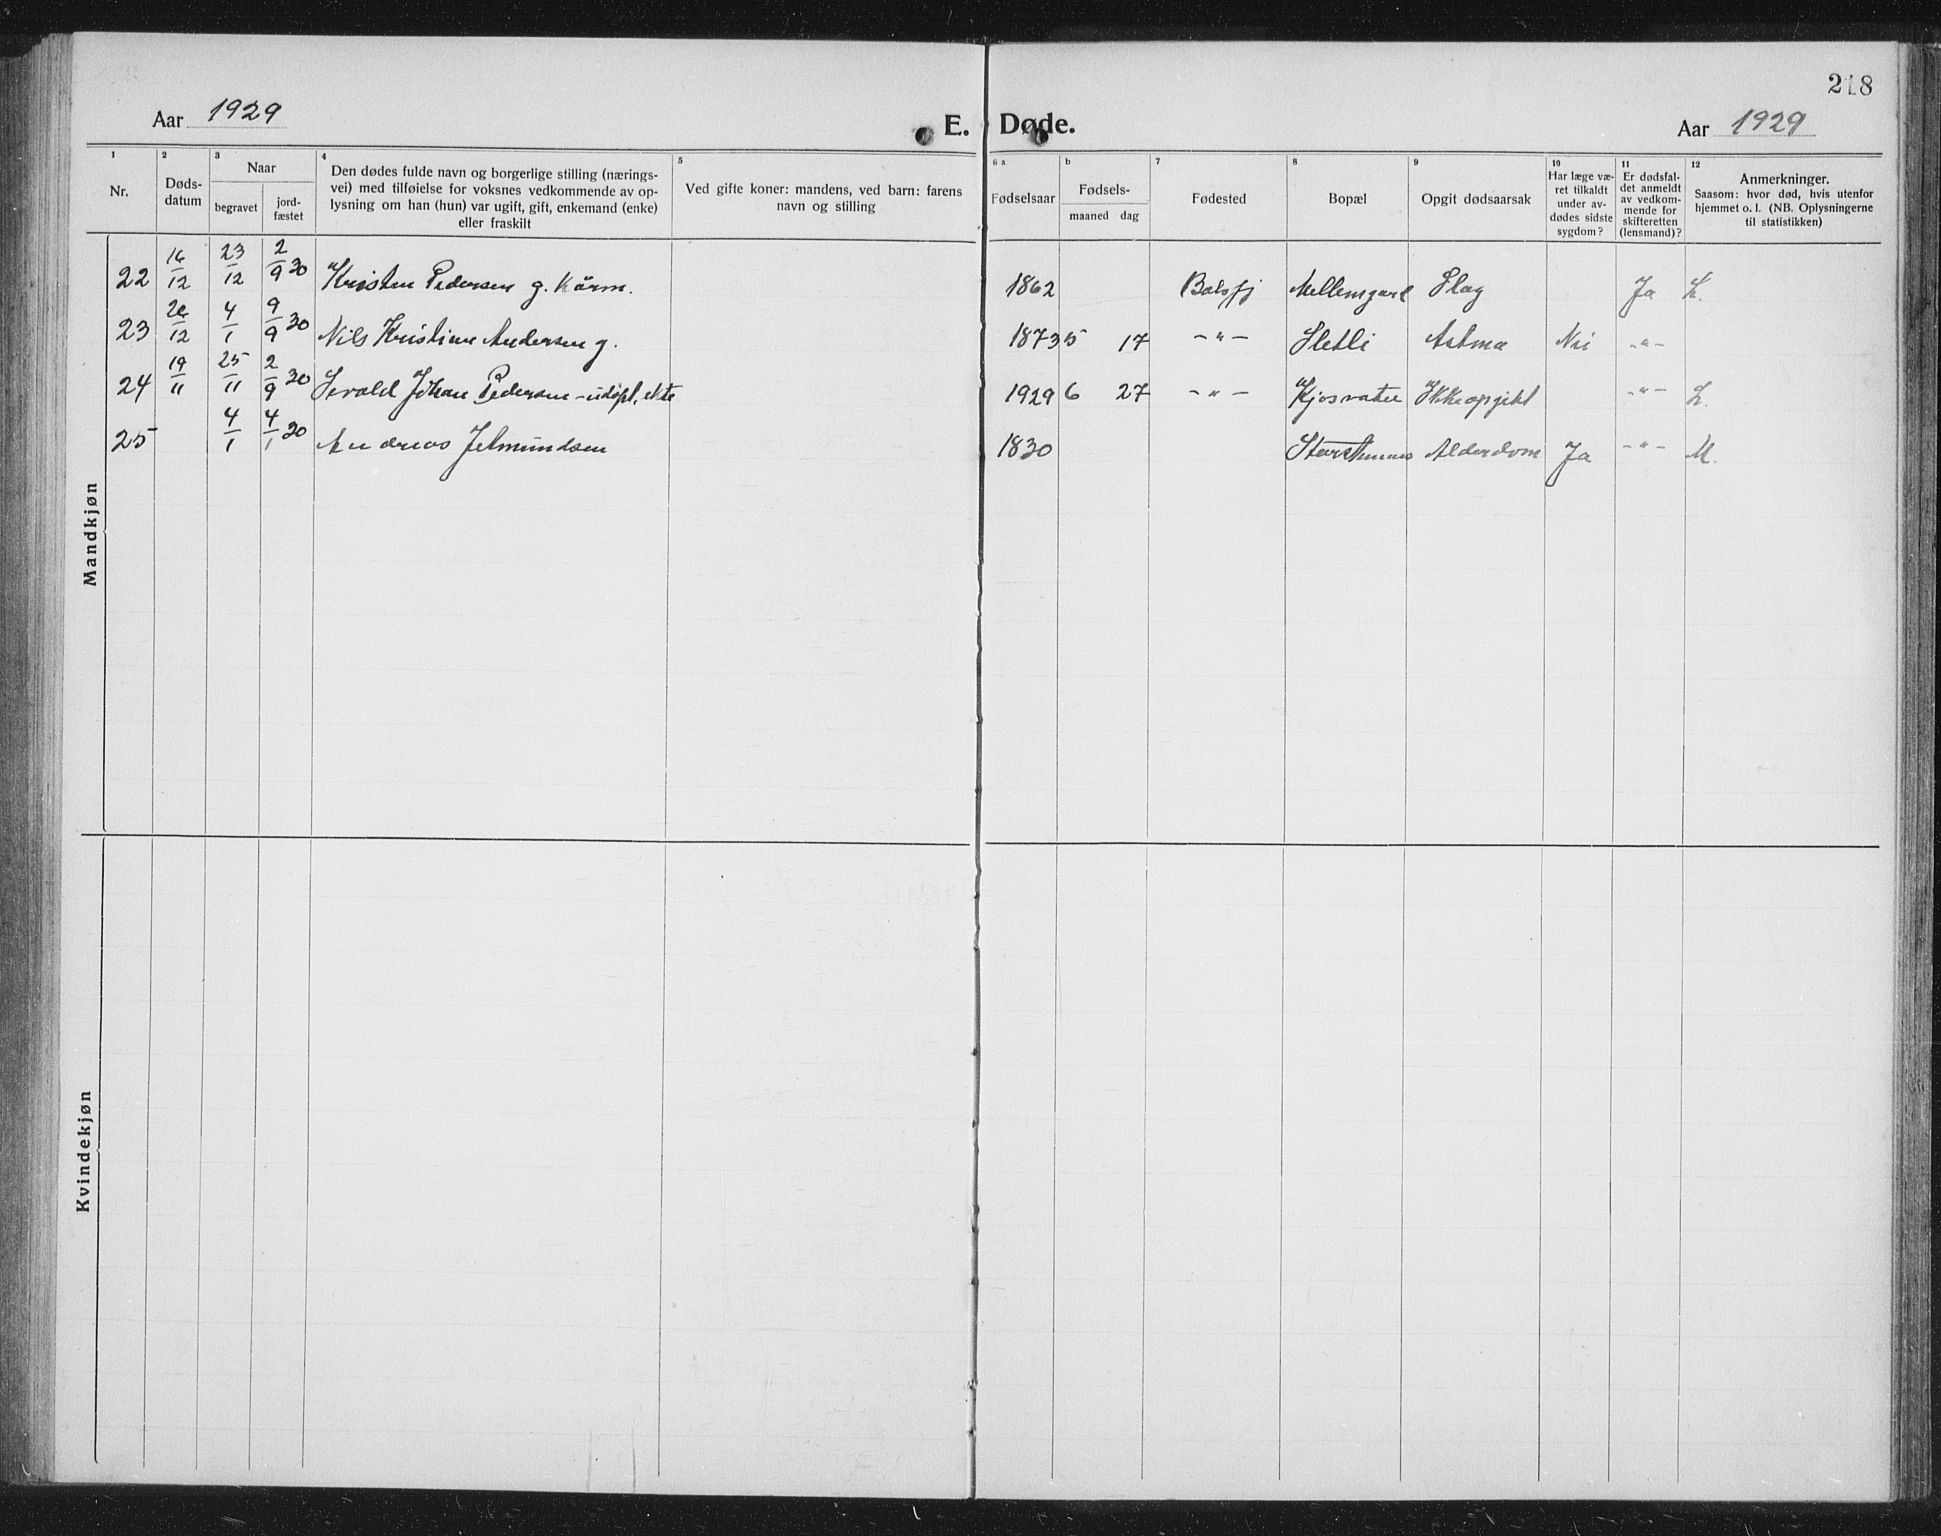 218
Aar 1929
E. Døde.
Aar 1929
1 2 3 4 5 6 a b 7 8 9 10 11 12
Nr.
Døds-
datum
Naar
begravet
jord-
fæstet
Den dødes fulde navn og borgerlige stilling (nærings-
vei) med tilføielse for voksnes vedkommende av op-
lysning om han (hun) var ugift, gift, enkemand (enke)
eller fraskilt
Ved gifte koner: mandens, ved barn: farens
navn og stilling
Fødselsaar
Fødsels-
maaned dag
Fødested
Bopæl
Opgit dødsaarsak
Har læge væ-
ret tilkaldt
under av-
dødes sidste
sygdom?
Er dødsfal-
det anmeldt
av vedkom-
mende for
skifteretten
(lensmand)?
Anmerkninger.
Saasom: hvor død, hvis utenfor
hjemmet o. l. (NB. Oplysningerne
til statistikken)
Mandkjøn
22 16/12 23/12 2/9 30 Kristen Pedersen g. 1862 Balsfj Mellemgard Slag Ja L.
23 4/1 9/9 30 Nils Kristian Andersen g. 1873 5 17 -"- Sletli Astma Nei -"-
24 19/11 25/11 2/9 30 Johan Pedersen - udøpt, ekte 1929 6 27 -"- Kjosvatn Ikke opgitt -"- L.
25 4/1 4/1 30 Andreas Jetmundsen 1830 Alderdom Ja -"- M.
Kvindekjøn